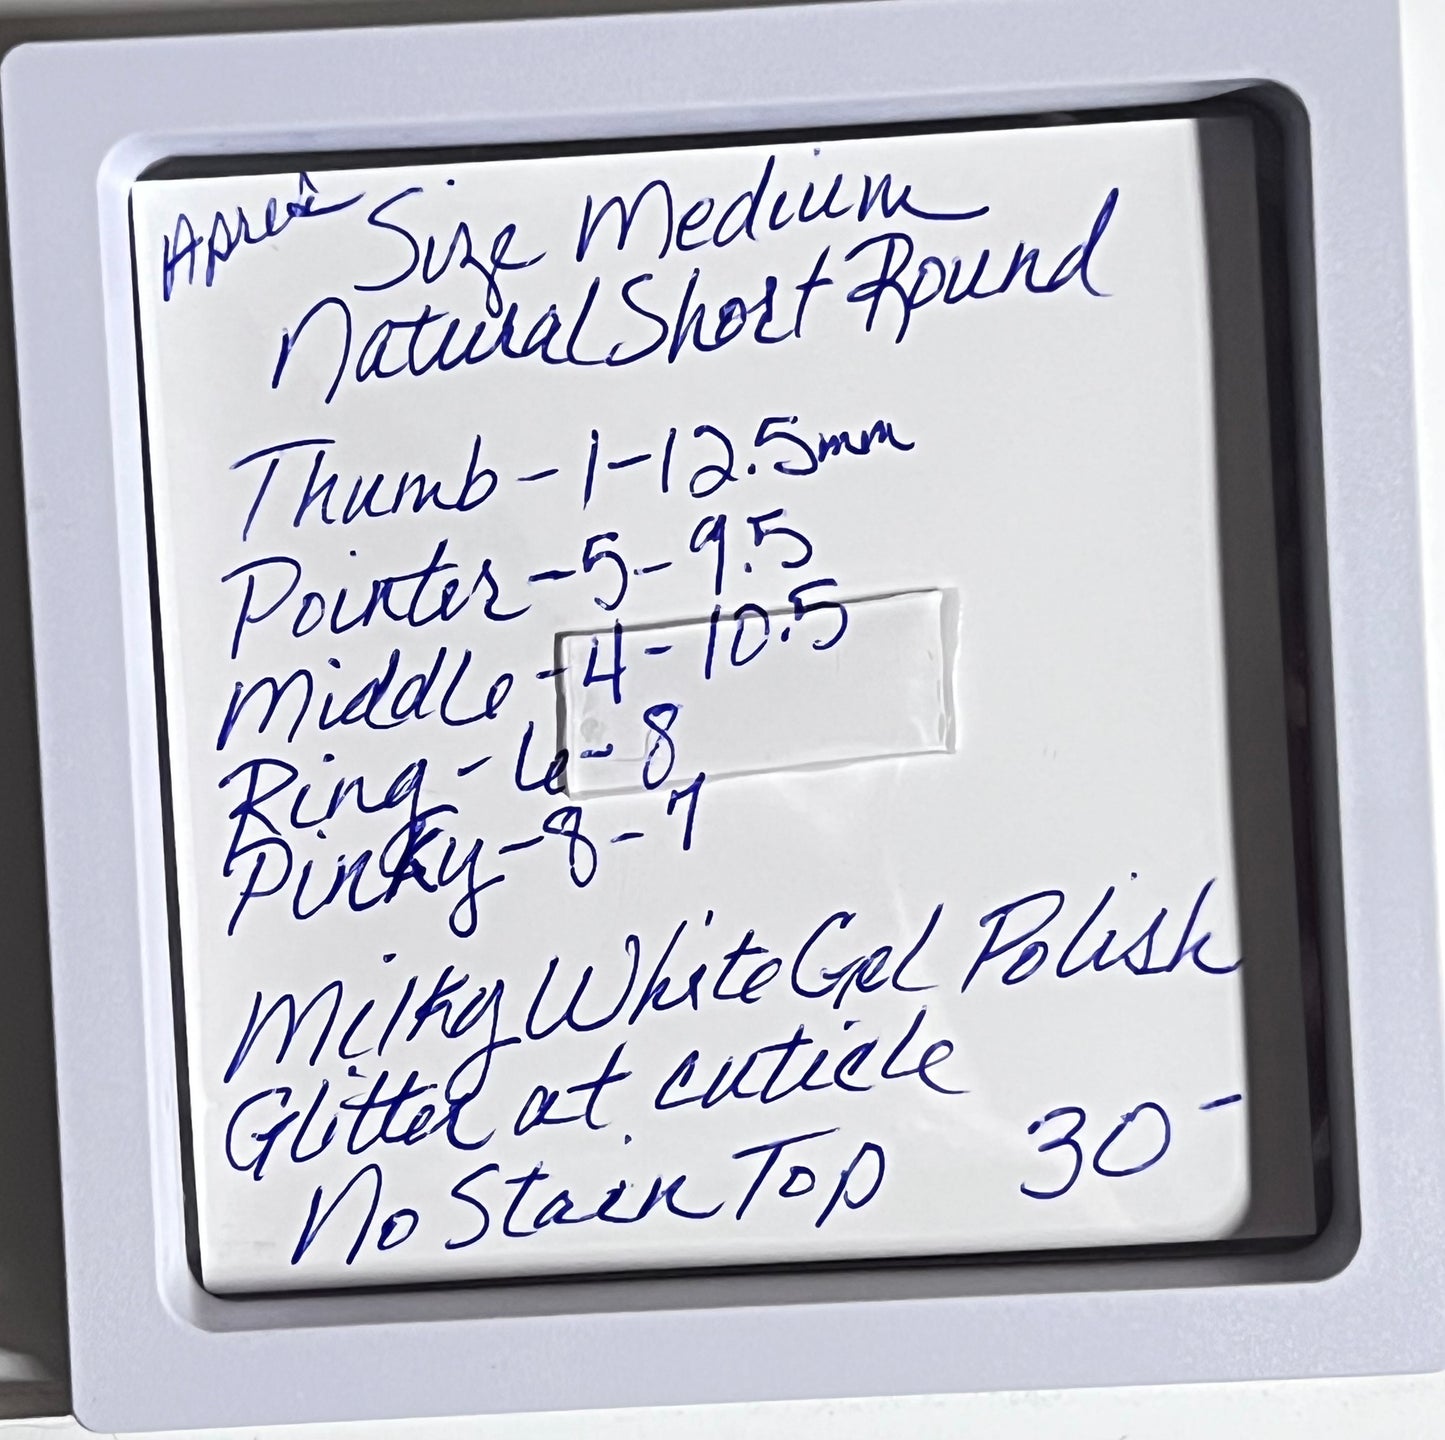 Aprés Size Medium
Natural Short Round
Thumb - 1 - 12.5mm
Pointer - 5 - 9.5
Middle - 4 - 10.5
Ring - 6 - 8
Pinky - 8 - 7
Milky White Gel Polish
Glitter at cuticle
No Stain Top 30-